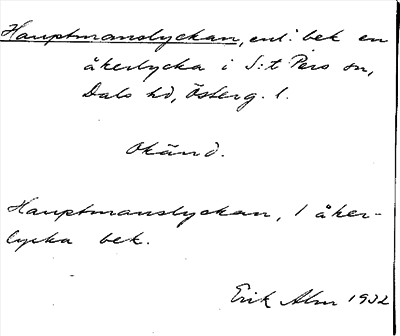 Hauptmanslyckan, enl. bek en
åkerlycka i S:t Pers sn,
Dals hd, Österg. l.
Okänd.
Hauptmanslyckan, 1 åker-
lycka bek.
Erik Alm 1932